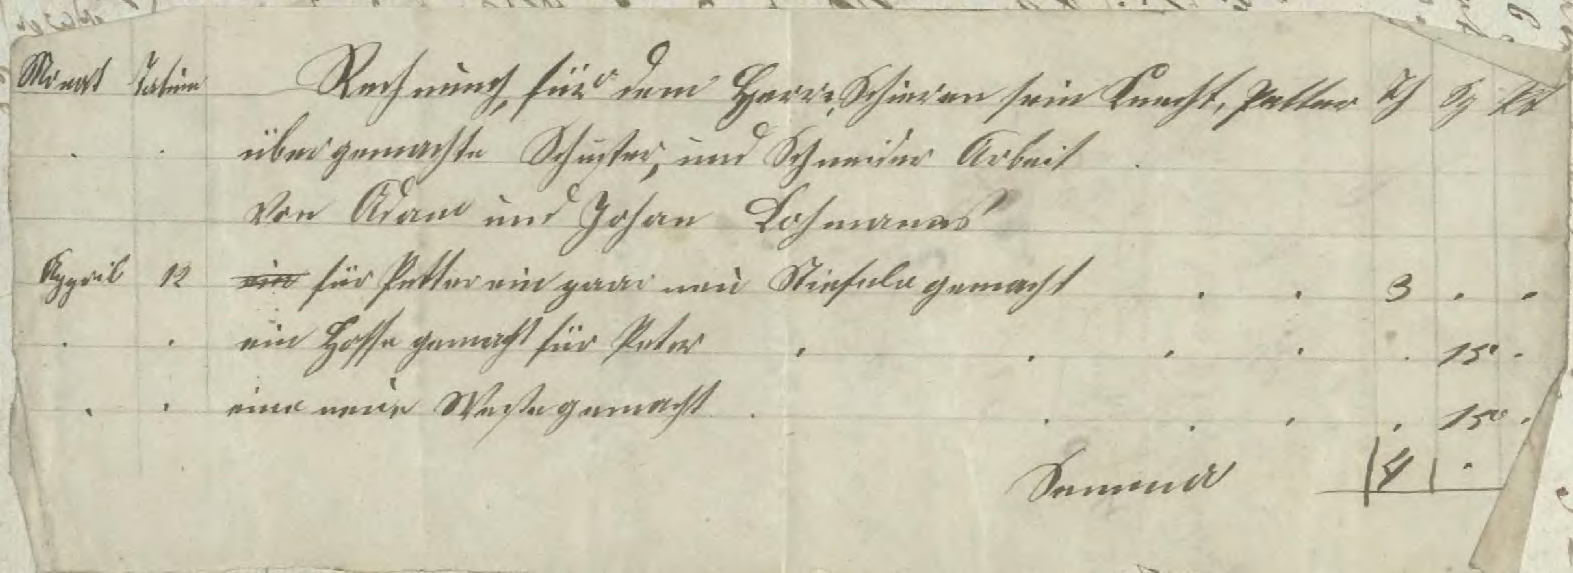 Monat Datum Rechnung, für dem Herrn Schieren sein Knecht, Petter Th Sg Pf
über gemachte Schuster, und Schneider Arbeit
Von Adam und Johan Lohmanns
Appril 12 ein für Petter ein paar neu Stiefele gemacht 3
ein Hosse gemacht für Peter 15
eine neue Weste gemacht 15
Summa 4